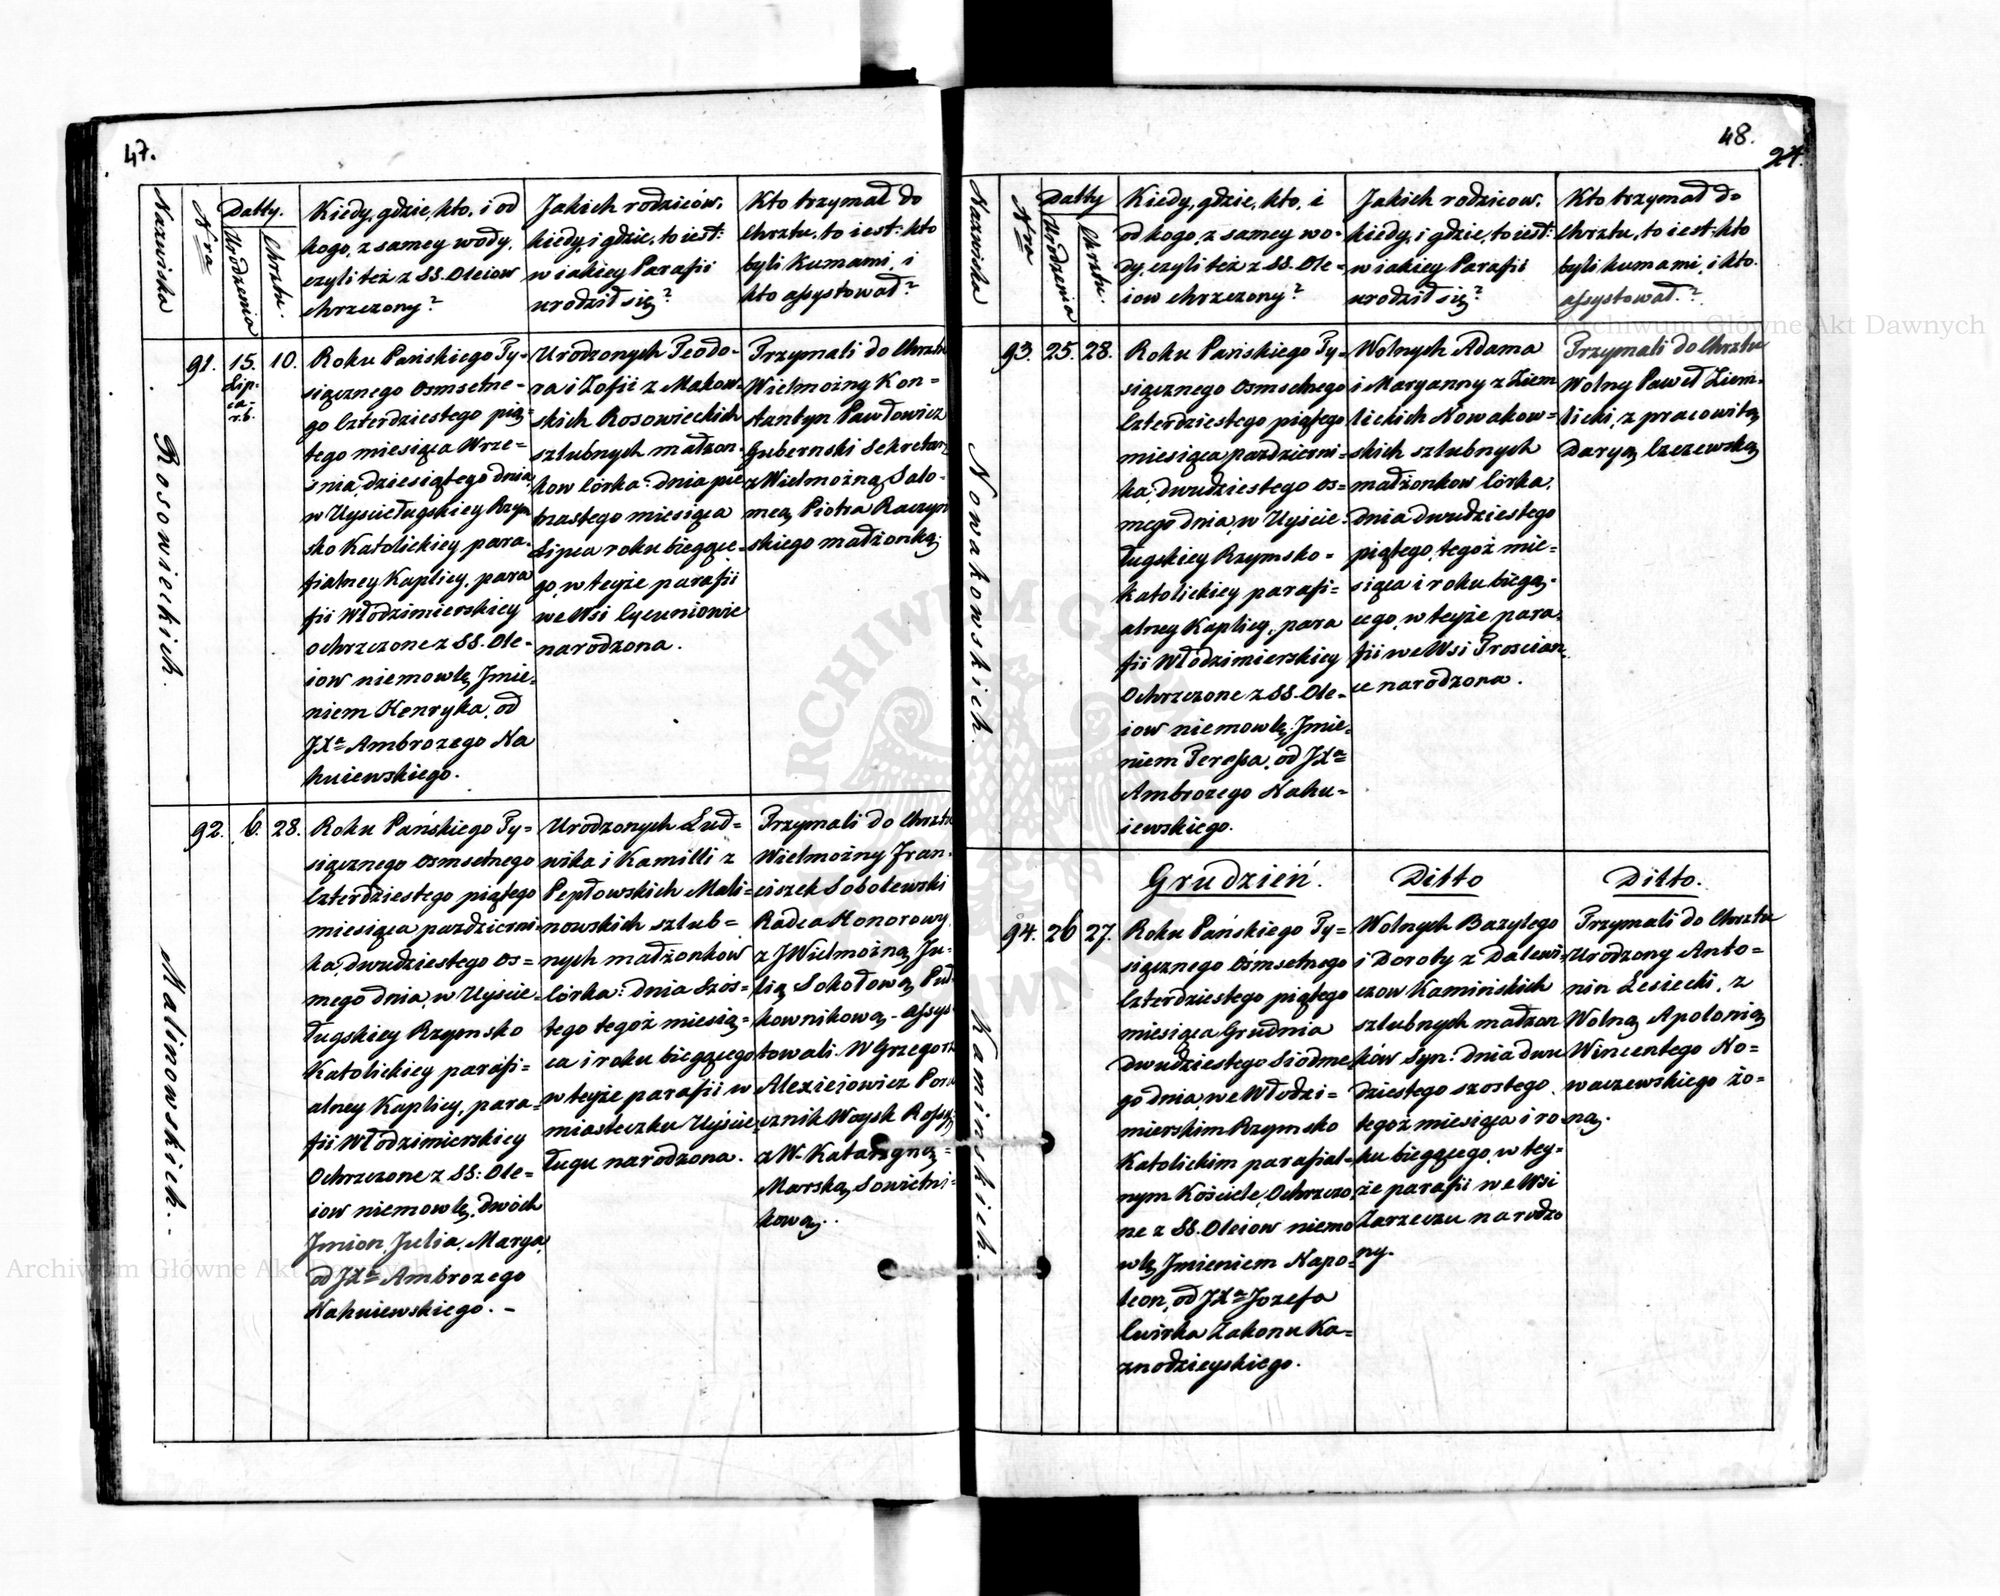 47.
Nazwiska
Nra
Datty.
Urodzenia
Chrztu.
Kiedy, gdzie, kto, i od
kogo, z samey wody,
czyli też z SS. Oleiow
chrzczony?
Jakich rodziców,
kiedy, i gdzie, to iest:
w iakiey Parafii
urodził się?
Kto trzymał do
Chrztu, to iest: kto
byli Kumami, i
kto assystował?
Rosowieckich.
91.
15.
Lip-
ca
r.b.
10.
Roku Pańskiego Ty-
siącznego Osmsetne-
go Czterdziestego pią-
tego miesiąca Wrze-
śnia, dziesiątego dnia,
w Uyścieługskiey Rzym
sko Katolickiey para-
fialney Kaplicy, para
fii Włodzimierskiey
ochrzczone z SS. Ole-
iow niemowlę, Jmie-
niem Henryka, od
JXa Ambrozego Na
huiewskiego.
Urodzonych Teodo-
ra i Zofii z Makow-
skich Rosowieckich
szlubnych małżon-
kow Córka: dnia pię
tnastego miesiąca
Lipca roku bieżące-
go, w teyże parafii
we Wsi Cycuniowie
narodzona.
Trzymali do Chrztu
Wielmożny Kon-
stantyn Pawłowicz
Gubernski Sekretarz
z Wielmożną Salo-
meą Piotra Raczyń
skiego małżonką.
Malinowskich.
92.
6.
28.
Roku Pańskiego Ty-
siącznego Osmsetnego
Czterdziestego piątego
miesiąca pazdzierni-
ka, dwudziestego os-
mego dnia, w Uyście-
ługskiey Rzymsko
Katolickiey parafi-
alney Kaplicy, para-
fii Włodzimierskiey
Ochrzczone z SS: Ole-
iow niemowlę, dwóch
Jmion, Julia, Marya,
od JXa Ambrozego
Nahuiewskiego. -
Urodzonych Lud-
wika i Kamilli z
Pepłowskich Mali-
nowskich szlub-
nych małżonków
Córka: dnia Szós-
tego tegoż miesią-
ca i roku bieżącego
w teyże parafii w
miasteczku Uyście-
ługu narodzona.
Trzymali do Chrztu
Wielmożny Fran-
ciszek Sobolewski
Radca Honorowy
z JWielmożną Ju-
lią Sokołową Puł-
kownikową - Assys-
towali: W Grzegorz
Alexiejowicz Poru
cznik Woysk Rossy:
z W. Katarzyną
Marską, Sowietni-
kową.
48.
24.
Nazwiska
Nra
Datty
Urodzenia
Chrztu.
Kiedy, gdzie, kto, i
od kogo, z samey wo-
dy, czyli też z SS. Ole-
iow chrzczony?
Jakich rodzicow,
kiedy, i gdzie, to iest:
w iakiey Parafii
urodził się?
Kto trzymał do
Chrztu, to iest: kto
byli kumami, i kto
assystował?
Nowakowskich.
93.
25.
28.
Roku Pańskiego Ty-
siącznego Osmsetnego
Czterdziestego piątego
miesiąca pazdzierni-
ka, dwudziestego os-
mego dnia, w Uyście-
ługskiey Rzymsko-
Katolickiey parafi-
alney Kaplicy, para
fii Włodzimierskiey
Ochrzczone z SS. Ole-
iow niemowlę, Jmie-
niem Teressa, od JXa
Ambrozego Nahu-
iewskiego.
Wolnych Adama
i Maryanny z Ziem
lickich Nowakow-
skich szlubnych
małżonkow Córka,
dnia dwudziestego
piątego, tegoż mie-
siąca i roku bieżą-
cego, w teyże para-
fii we Wsi Troscian-
ce narodzona.
Trzymali do Chrztu
Wolny Paweł Ziem-
licki, z pracowitą
Daryą Czezewską
Kaminskich.
Grudzień.
Ditto
Ditto.
94.
26
27.
Roku Pańskiego Ty-
siącznego Ośmsetnego
Czterdziestego piątego
miesiąca Grudnia
dwudziestego Siódme
go dnia, we Włodzi-
mierskim Rzymsko
Katolickim parafial-
nym Kościele, Ochrzczo
ne z SS. Oleiow niemo
wlę, Jmieniem Napo-
leon, od JXa Jozefa
Cwirka Zakonu Ka-
znodzieyskiego.
Wolnych Bazylego
i Doroty z Dalewi-
czow Kamińskich
szlubnych małżon
ków Syn: dnia dwu
dziestego szostego
tegoż miesiąca i ro
ku bieżącego, w tey-
że parafii we Wsi
Zarzeczu narodzo
ny.
Trzymali do Chrztu
Urodzony Anto-
nin Lesiecki, z
Wolną Apolonią
Wincentego No-
waczewskiego żo-
ną.
Archiwum Główne Akt Dawnych
Archiwum Główne Akt Dawnych